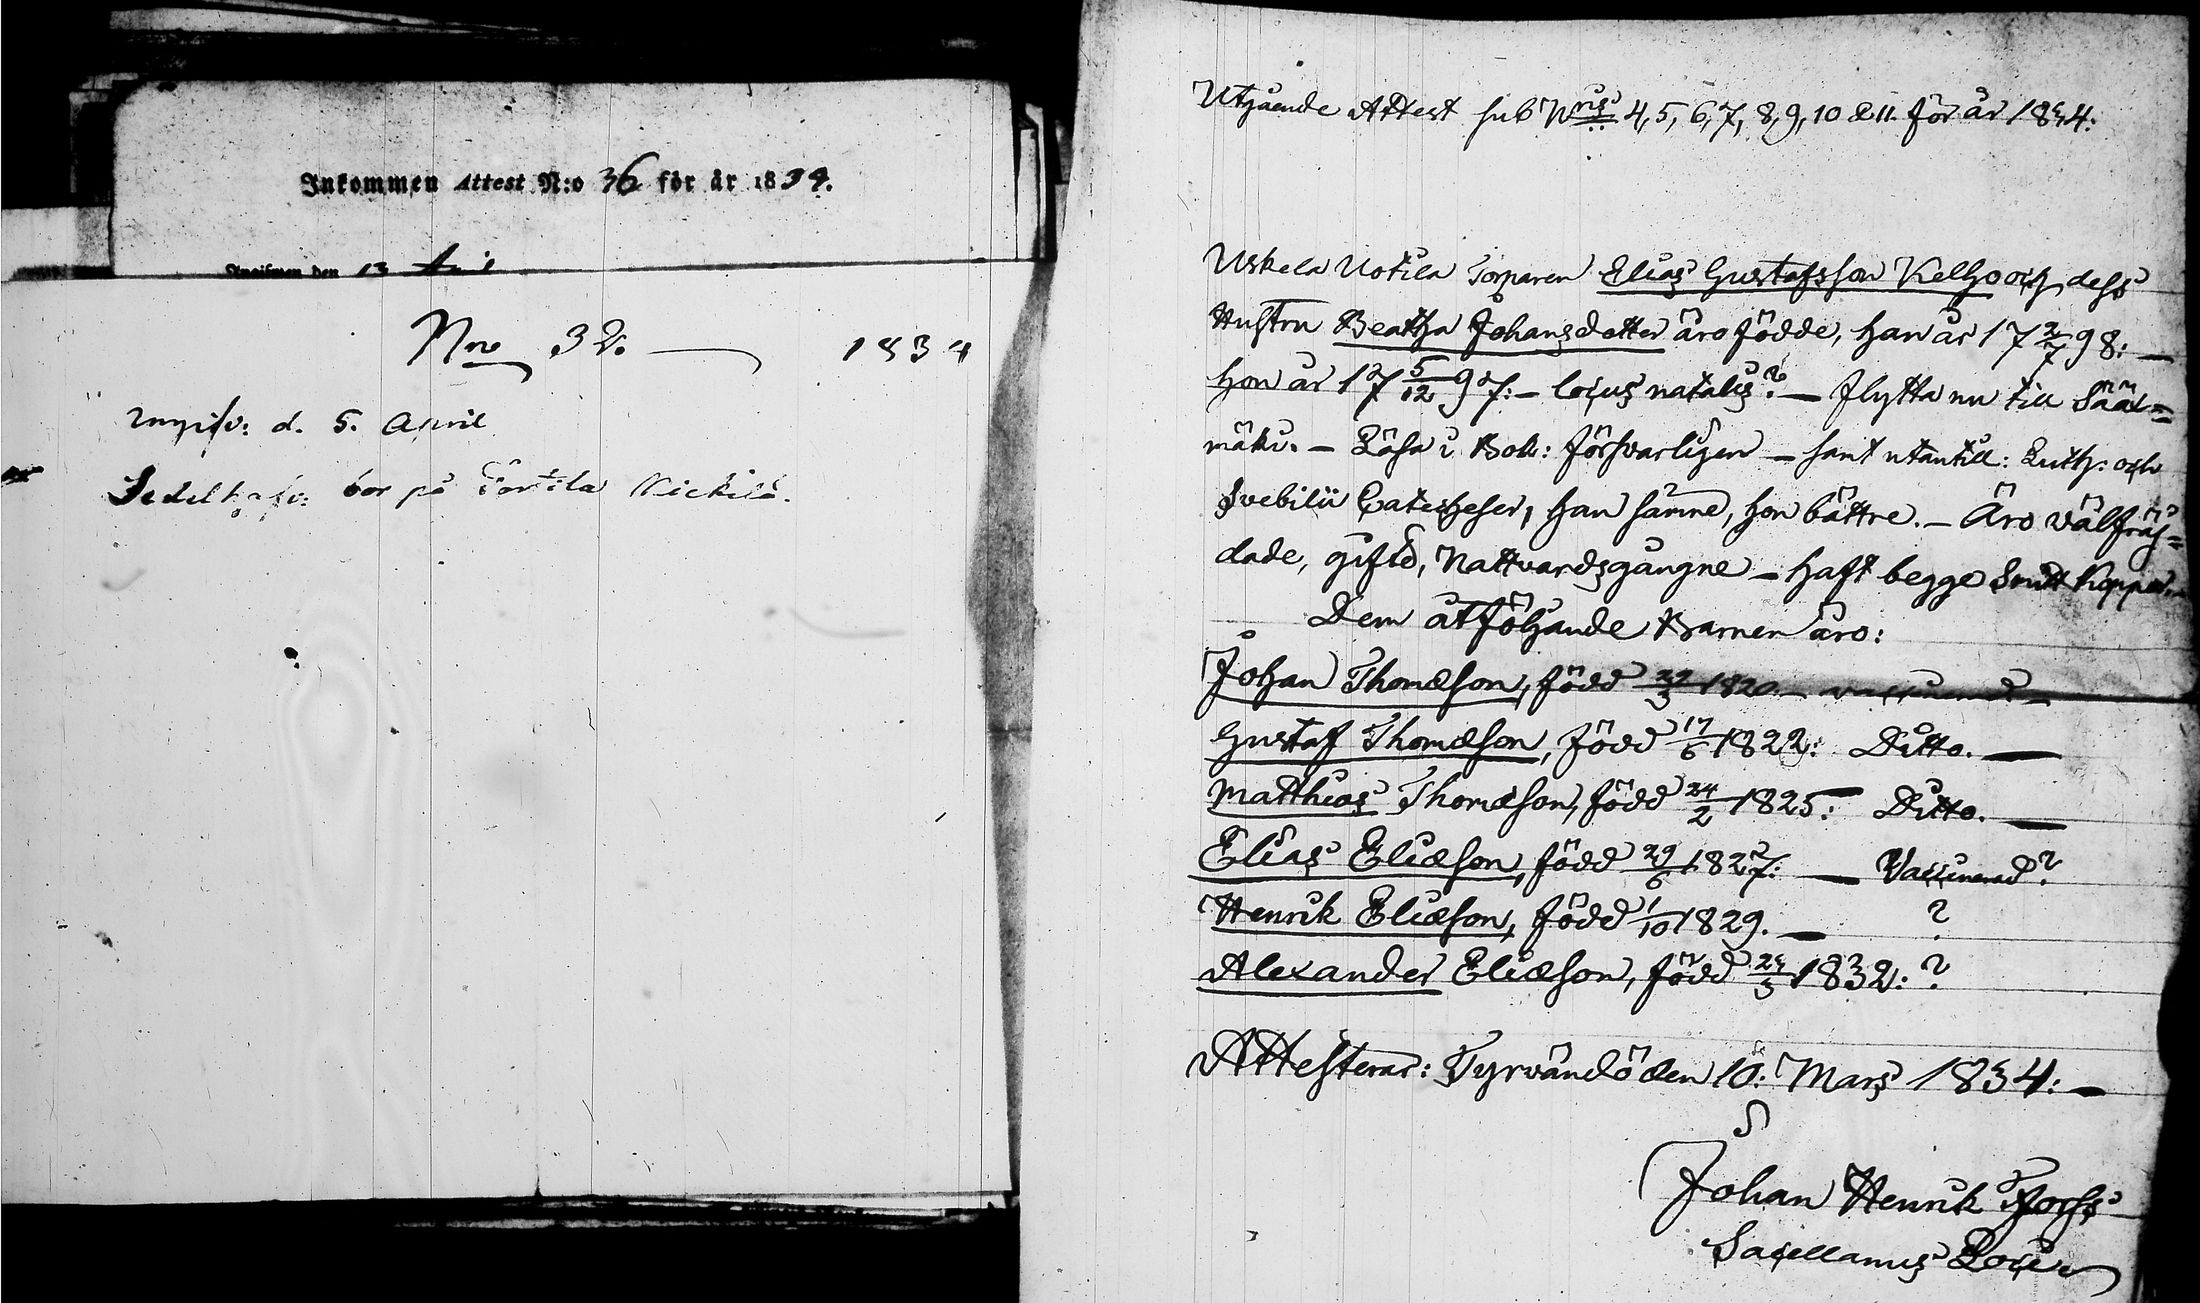 Inkommen Attest N:o 36 för år 1834.
Angifwen den 13
Nro 32. 1834
Angifv: d. 5. April
Sedelhafv: bor på Tortila Kickilä.
Utgående Attest sub Nris 4, 5, 6, 7, 8, 9, 10 & 11. för år 1834:
Uskela Uotila Torparen Elias Gustafsson Kelho och dess
Hustru Beatha Johansdotter äro födde, han år 17 2/7 98: —
hon år 17 5/12 97: — locus natalis? — flytta nu till Sääx=
mäki. — Läsa i Bok: försvarligen — samt utantill: Luth: och
Svebilii Catecheser, han sämre, hon bättre. — Äro välfräj=
dade, gifte, Nattvardsgångne — haft begge Smitt Koppor.
Dem åtföljande Barnen äro:
Johan Thomæson, född 29/3 1820 — vaccinerad —
Gustaf Thomæson, född 17/6 1822: Ditto. —
Matthias Thomæson, född 24/2 1825: Ditto. —
Elias Eliæson, född 29/6 1827: — Vaccinerad?
Henrik Eliæson, född 1/10 1829. — ?
Alexander Eliæson, född 23/3 1832: ?
Attesterar: Tyrvändö den 10: Mars 1834: —
Johan Henrik
Sacellanus Loci